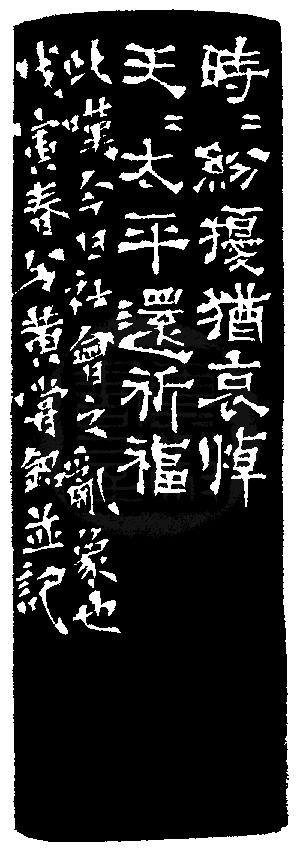 時〻紛擾猶哀悼
天〻太平還祈福
此嘆今日社會之亂象也
戊寅春分黃嘗銘並記